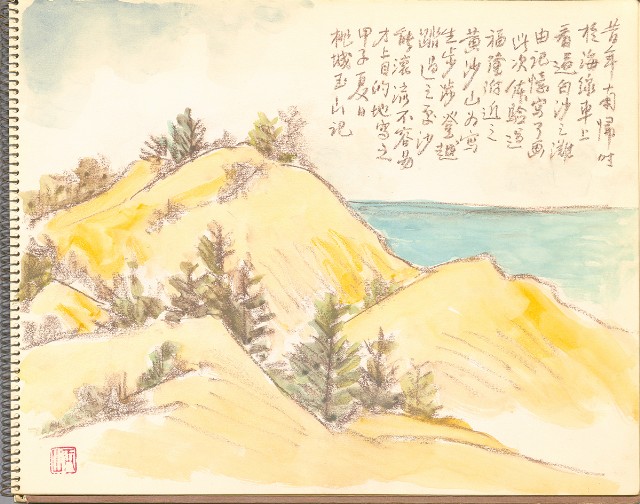 昔年南歸時
於海線車上
看過白沙之灘
由記憶寫了画
此次体驗過
福隆附近之
黄沙山为寫
生步涉登越
踏過之處沙
能滾流不容易
才上目的地寫之
甲子夏日
桃城玉山記